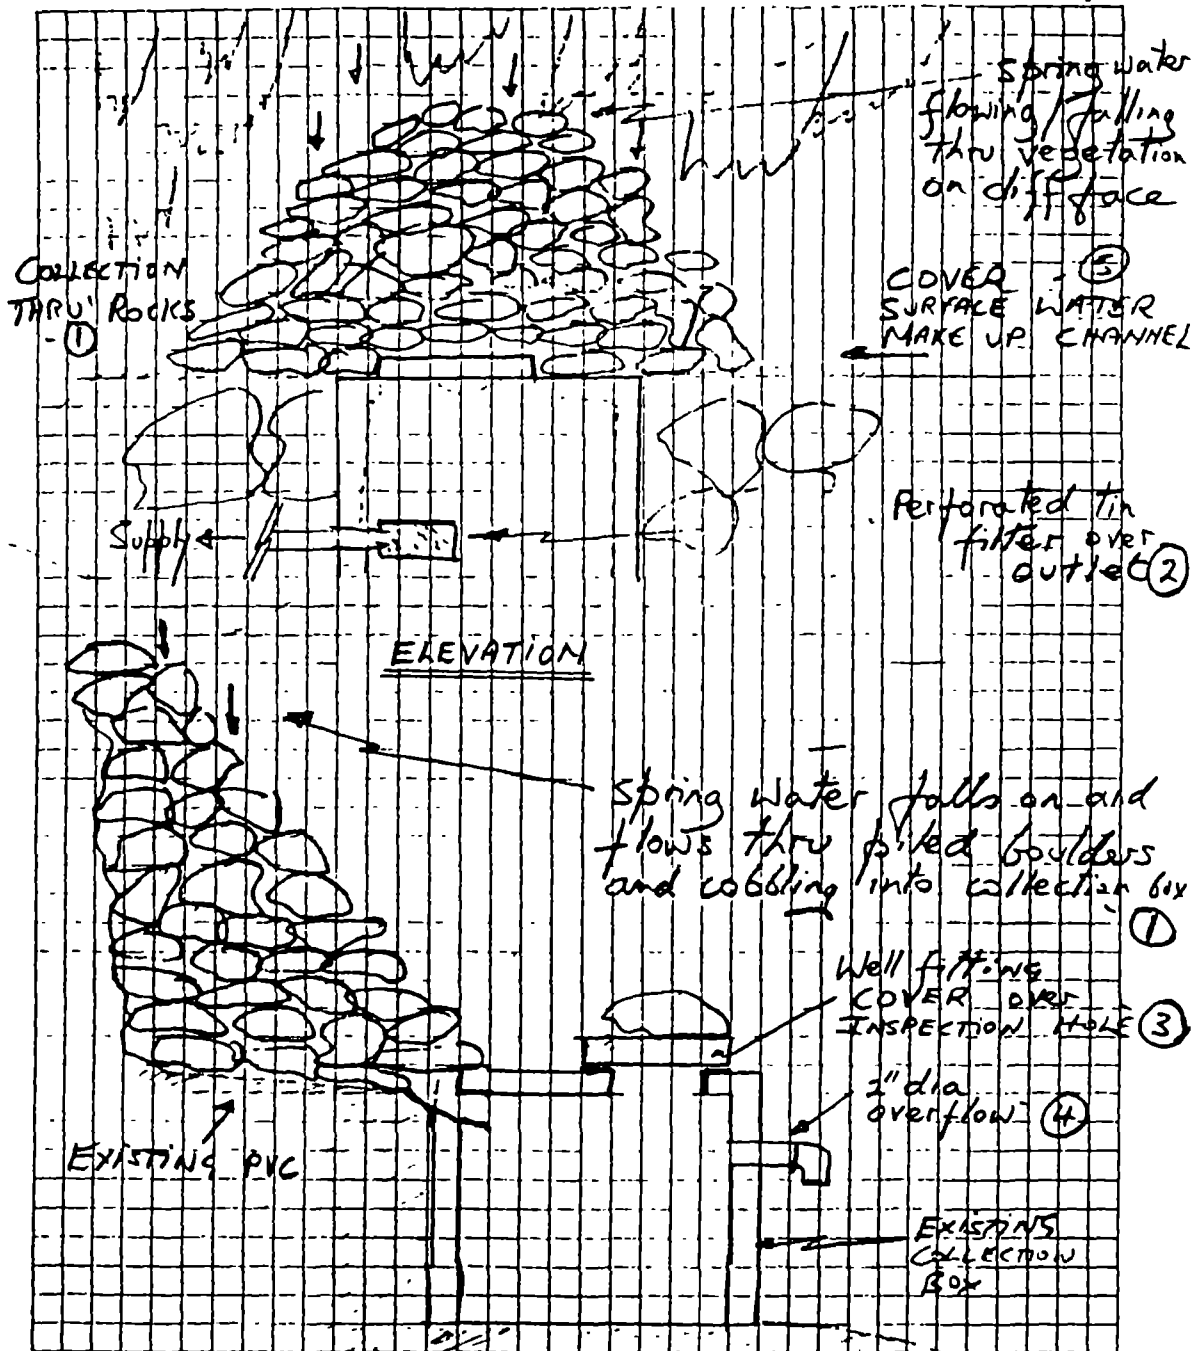 Spring water
flowing / falling
thru vegetation
on cliff face
COLLECTION
THRU' ROCKS
- ①
COVER - ⑤
SURFACE WATER
MAKE UP CHANNEL
Supply
Perforated tin
filter over
outlet ②
ELEVATION
Spring water falls on and
flows thru piled boulders
and cobbling into collection box
①
Well fitting
COVER over
INSPECTION HOLE ③
2" dia
overflow ④
EXISTING PVC
EXISTING
COLLECTION
BOX